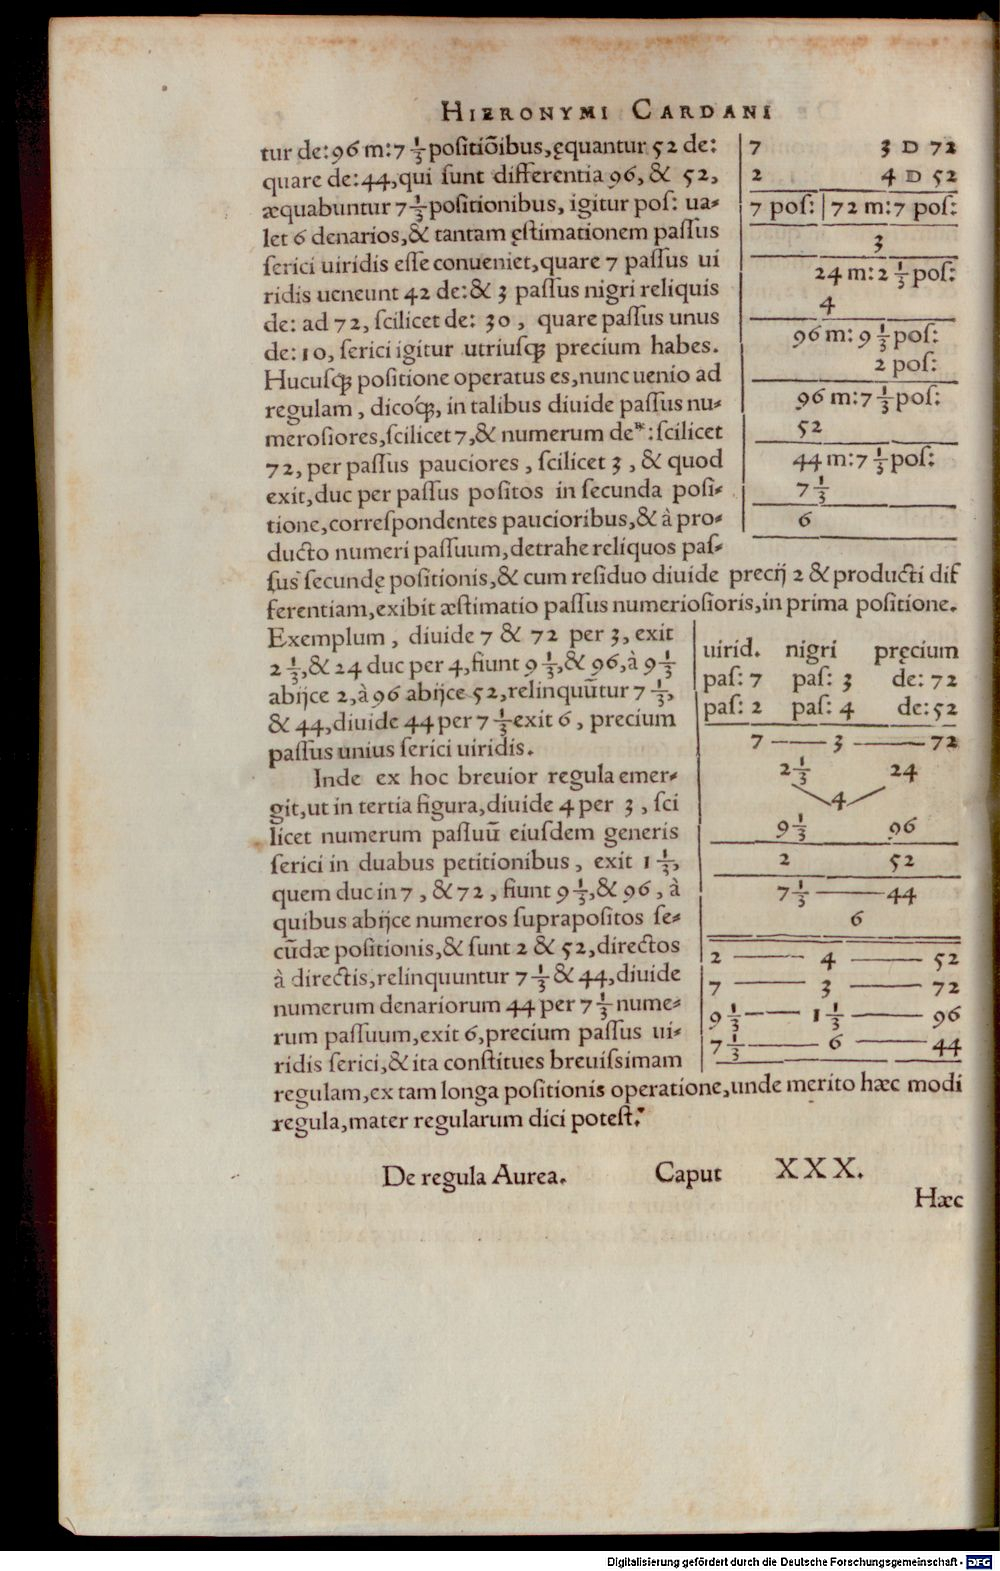 HIERONYMI CARDANI
tur de: 96 m: 7 1/3 positiõibus, ęquantur 52 de:
quare de: 44, qui sunt differentia 96, & 52,
æquabuntur 7 1/3 positionibus, igitur pos: ua-
let 6 denarios, & tantam ęstimationem passus
serici uiridis esse conueniet, quare 7 passus ui
ridis ueneunt 42 de: & 3 passus nigri reliquis
de: ad 72, scilicet de: 30, quare passus unus
de: 10, serici igitur utriusq; precium habes.
Hucusq; positione operatus es, nunc uenio ad
regulam, dicóq;, in talibus diuide passus nu-
merosiores, scilicet 7, & numerum de*: scilicet
72, per passus pauciores, scilicet 3, & quod
exit, duc per passus positos in secunda posi-
tione, correspondentes paucioribus, & à pro-
ducto numeri passuum, detrahe reliquos pas-
sus secundę positionis, & cum residuo diuide precij 2 & producti dif
ferentiam, exibit æstimatio passus numeriosioris, in prima positione.
7 3 D 72
2 4 D 52
7 pos: | 72 m: 7 pos:
3
24 m: 2 1/3 pos:
4
96 m: 9 1/3 pos:
2 pos:
96 m: 7 1/3 pos:
52
44 m: 7 1/3 pos:
7 1/3
6
Exemplum, diuide 7 & 72 per 3, exit
2 1/3, & 24 duc per 4, fiunt 9 1/3, & 96, à 9 1/3
abijce 2, à 96 abijce 52, relinquũtur 7 1/3,
& 44, diuide 44 per 7 1/3 exit 6, precium
passus unius serici uiridis.
Inde ex hoc breuior regula emer-
git, ut in tertia figura, diuide 4 per 3, sci
licet numerum passuũ eiusdem generis
serici in duabus petitionibus, exit 1 1/3,
quem duc in 7, & 72, fiunt 9 1/3, & 96, à
quibus abijce numeros suprapositos se-
cũdæ positionis, & sunt 2 & 52, directos
à directis, relinquuntur 7 1/3 & 44, diuide
numerum denariorum 44 per 7 1/3 nume-
rum passuum, exit 6, precium passus ui-
ridis serici, & ita constitues breuissimam
regulam, ex tam longa positionis operatione, unde merito hæc modi
regula, mater regularum dici potest.
uirid. nigri pręcium
pas: 7 pas: 3 de: 72
pas: 2 pas: 4 de: 52
7 — 3 — 72
2 1/3 24
4
9 1/3 96
2 52
7 1/3 — 44
6
2 — 4 — 52
7 — 3 — 72
9 1/3 — 1 1/3 — 96
7 1/3 — 6 — 44
De regula Aurea. Caput XXX.
Hæc
Digitalisierung gefördert durch die Deutsche Forschungsgemeinschaft - DFG